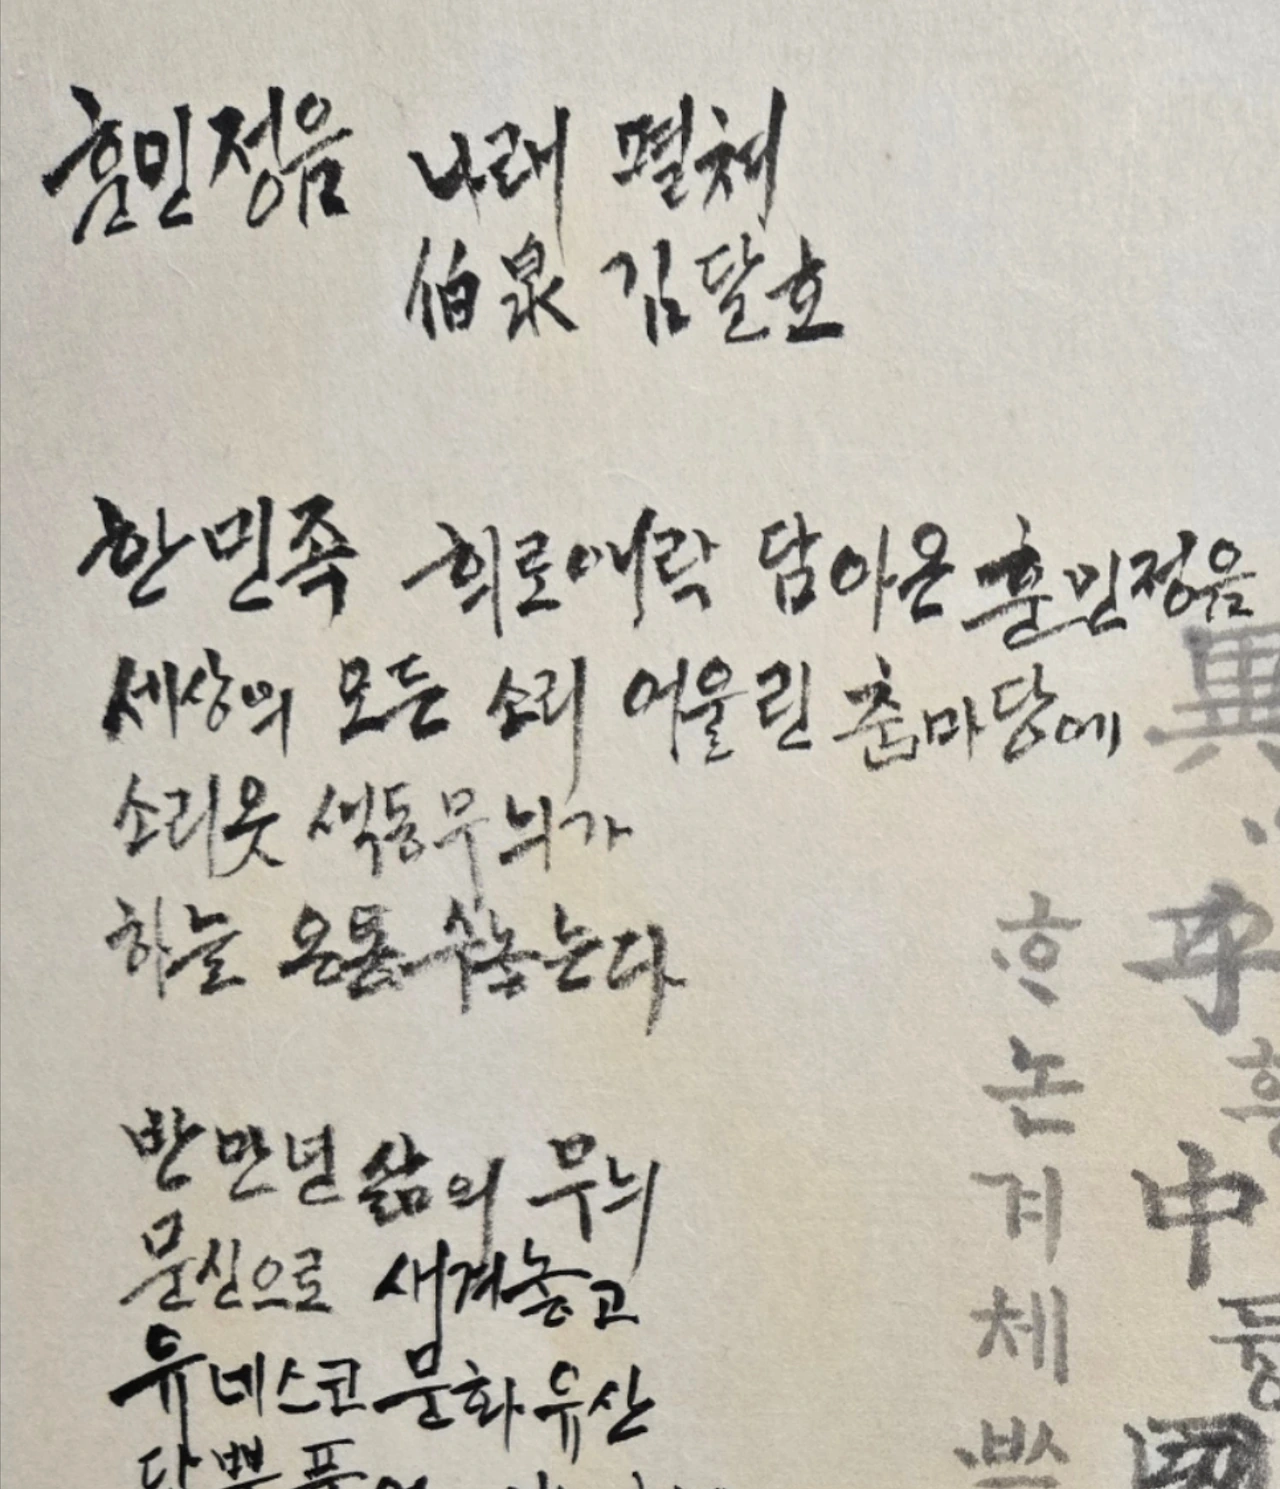 훈민정음 나래 펼체
伯泉 김달호
한민족 희로애락 담아온 훈민정음
세상의 모든 소리 어울린 춤마당에
소리옷 색동무늬가
하늘 온통 수놓는다
반만년 삶의 무늬
문신으로 새겨놓고
유네스코 문화유산
異
乎
中
國
논
겨
체